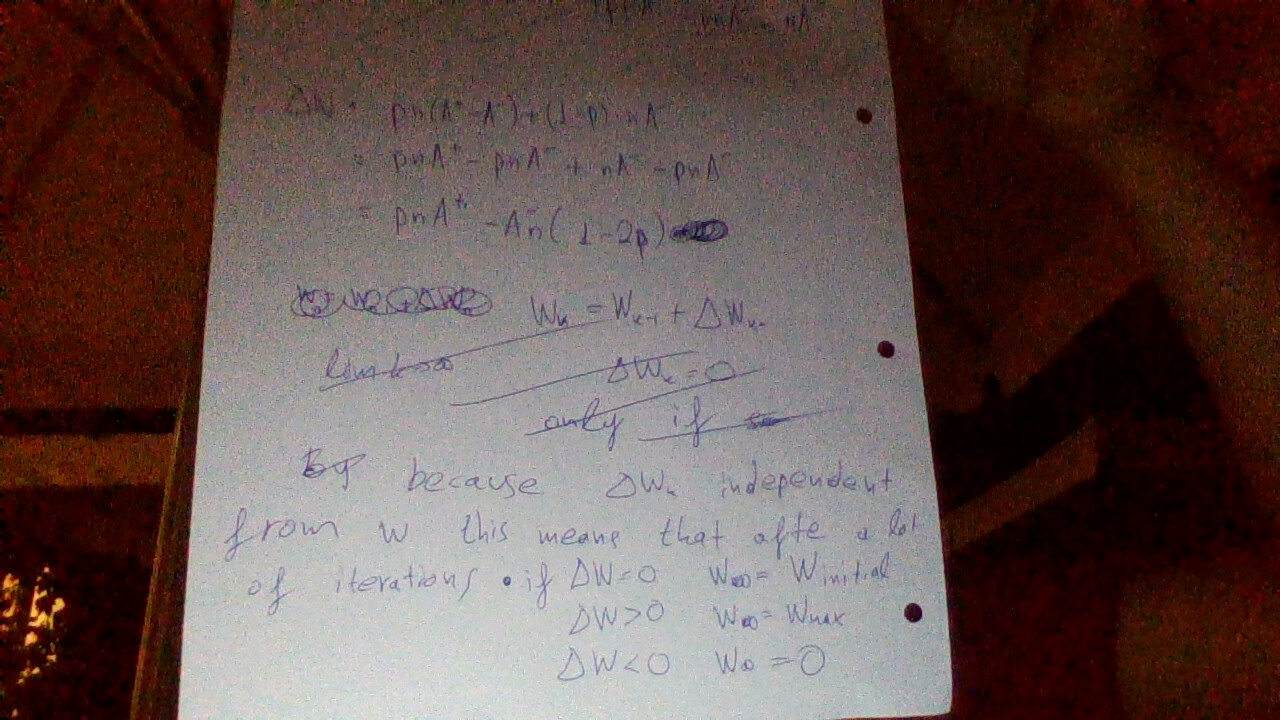 ΔW = pn(A⁺-A⁻)+(1-p)·nA⁻
= pnA⁺ - pnA⁻ + nA⁻ - pnA⁻
= pnA⁺ - A⁻n(1-2p)
Wₖ = Wₖ₋₁ + ΔWₖ₋
lim k→∞ ΔWₖ=0
only if
because ΔWₖ independent
from w this means that afte a lot
of iterations • if ΔW=0 W∞= Winitial
ΔW>0 W∞= Wmax
ΔW<0 W∞ =0